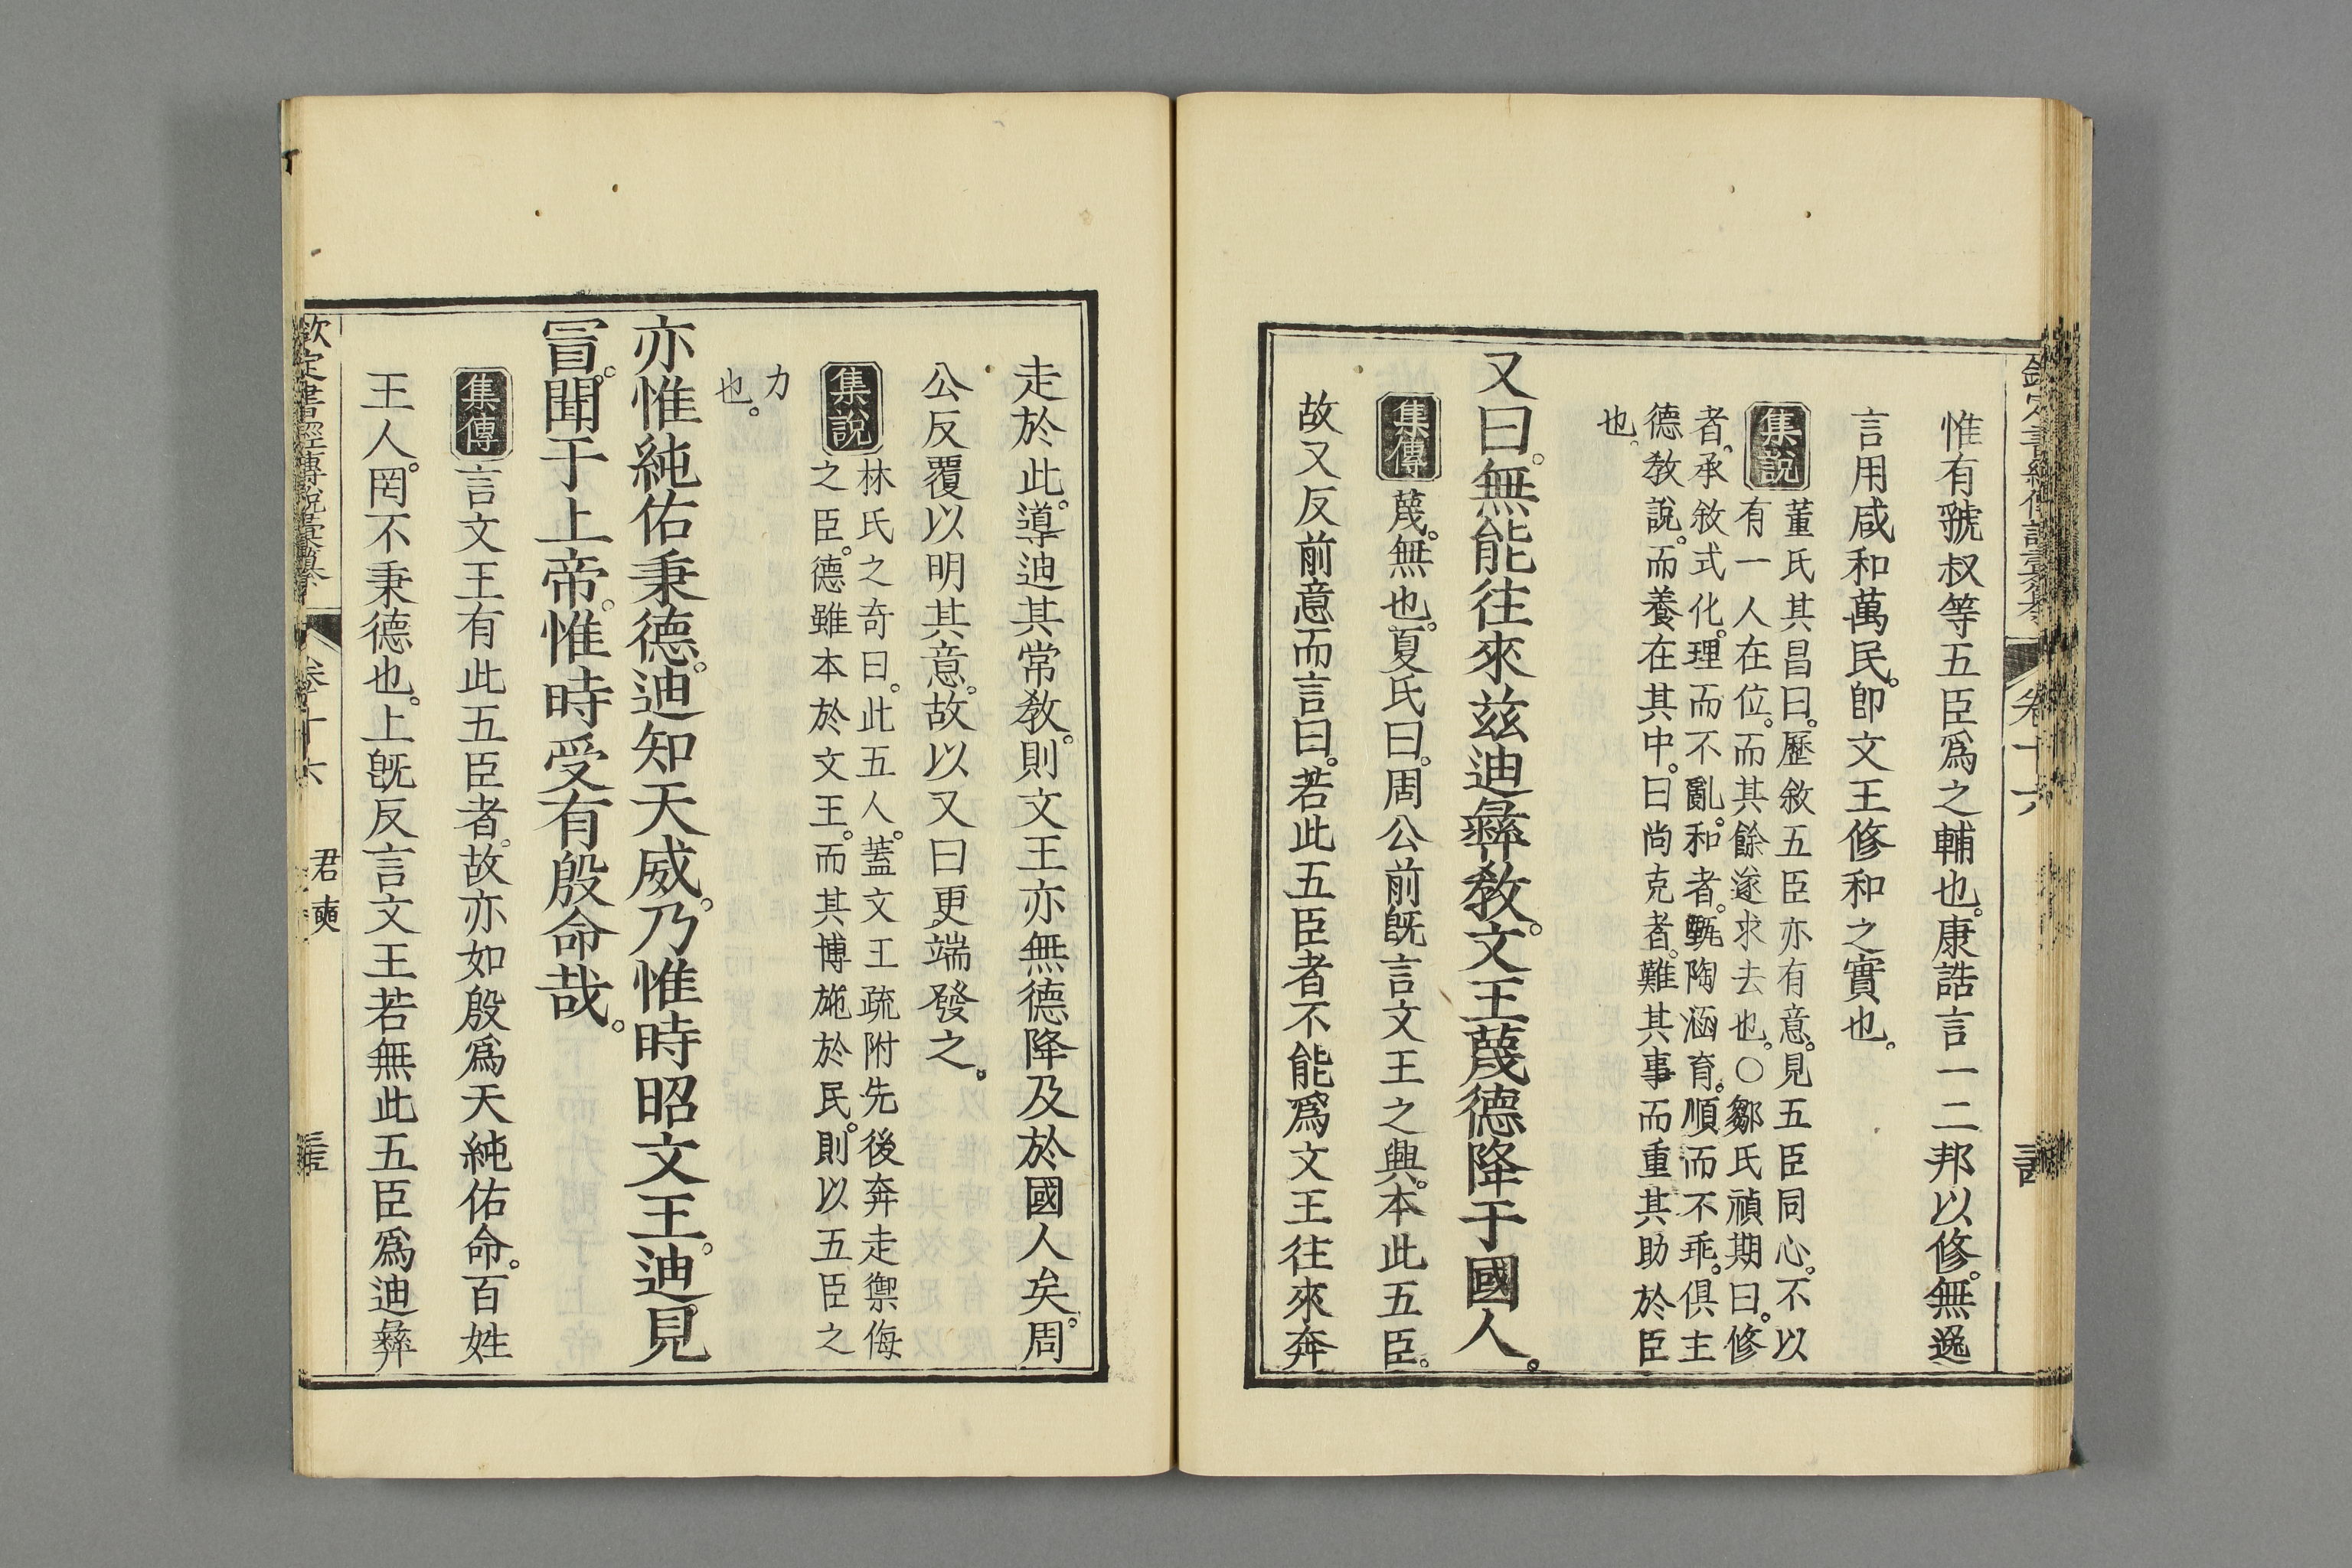 惟有虢叔等五臣爲之輔也。康誥言一二邦以修。無逸
言用咸和萬民。卽文王修和之實也。
集說
董氏其昌曰。歷敘五臣亦有意。見五臣同心。不以
有一人在位。而其餘遂求去也。○鄒氏禎期曰。修
者。承敘式化。理而不亂。和者。甄陶涵育。順而不乖。俱主
德敎說。而養在其中。曰尚克者。難其事而重其助於臣
也。
又曰。無能往來兹迪彝敎。文王蔑德降于國人。
集傳
蔑。無也。夏氏曰。周公前旣言文王之興。本此五臣。
故又反前意而言曰。若此五臣者不能爲文王往來奔
走於此。導迪其常敎。則文王亦無德降及於國人矣。周
公反覆以明其意。故以又曰更端發之。
集說
林氏之奇曰。此五人。蓋文王疏附先後奔走禦侮
之臣。德雖本於文王。而其博施於民。則以五臣之
力
也。
亦惟純佑秉德。迪知天威。乃惟時昭文王。迪見
冒。聞于上帝。惟時受有殷命哉。
集傳
言文王有此五臣者。故亦如殷爲天純佑命。百姓
王人。罔不秉德也。上旣反言文王若無此五臣爲迪彝
欽定書經傳說彙纂
卷十六
君奭